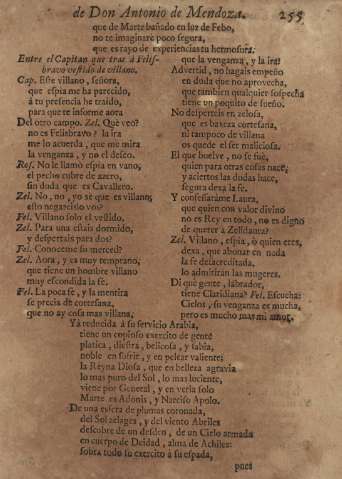 de Don Antonio de Mendoza. 255
que de Marte bañado en luz de Febo,
no te imaginarè poco segura,
que es rayo de experiencias tu hermosura.
Entre el Capitan que trae à Felis-
bravo vestido de villano.
Cap. Este villano, señora,
que espia me ha parecido,
à tu presencia he traido,
para que te informe aora
Del otro campo. Zel. Què veo?
no es Felisbravo? la ira
me lo acuerda, que me mira
la vengança, y no el deseo.
Ros. No le llamò espia en vano,
el pecho cubre de azero,
sin duda que es Cavallero.
Zel. No, no, yo sè que es villano,
esto negarèislo vos?
Fel. Villano solo el vestido.
Zel. Para una estais dormido,
y despertais para dos?
Fel. Conoceme su merced?
Zel. Aora, y es muy temprano,
que tiene un hombre villano
muy escondida la fè.
Fel. La poca fè, y la mentira
se precia de cortesana,
que no ay cosa mas villana,
que la vengança, y la ira!
Advertid, no hagais empeño
en duda que no aprovecha,
que tambien qualquier sospecha
tiene un poquito de sueño.
No desperteis en zelosa,
que es baxeza cortesana,
ni tampoco de villana
os quede el ser maliciosa.
El que buelve, no se fuè,
quien para otras cosas nace,
y aciertos las dudas hace,
segura dexa la fè.
Y confessaràme Laura,
que quien con valor divino
no es Rey en todo, no es digno
de querer à Zelidaura?
Zel. Villano, espia, ò quien eres,
dexa, que abonar en nada
la fè desacreditada,
lo admitiràn las mugeres.
Di què gente, labrador,
tiene Claridiana? Fel. Escucha:
Cielos, su vengança es mucha,
pero es mucho mas mi amor.
Yà reducida à su servicio Arabia,
tiene un copioso exercito de gente
platica, diestra, belicosa, y sabia,
noble en sufrir, y en pelear valiente;
la Reyna Diosa, que en belleza agravia
lo mas puro del Sol, lo mas luciente,
viene por General, y en verla solo
Marte es Adonis, y Narciso Apolo.
De una esfera de plumas coronada,
del Sol zelages, y del viento Abriles
descubre de un desden, de un Cielo armada
en cuerpo de Deidad, alma de Achiles:
sobra todo su exercito à su espada,
pues